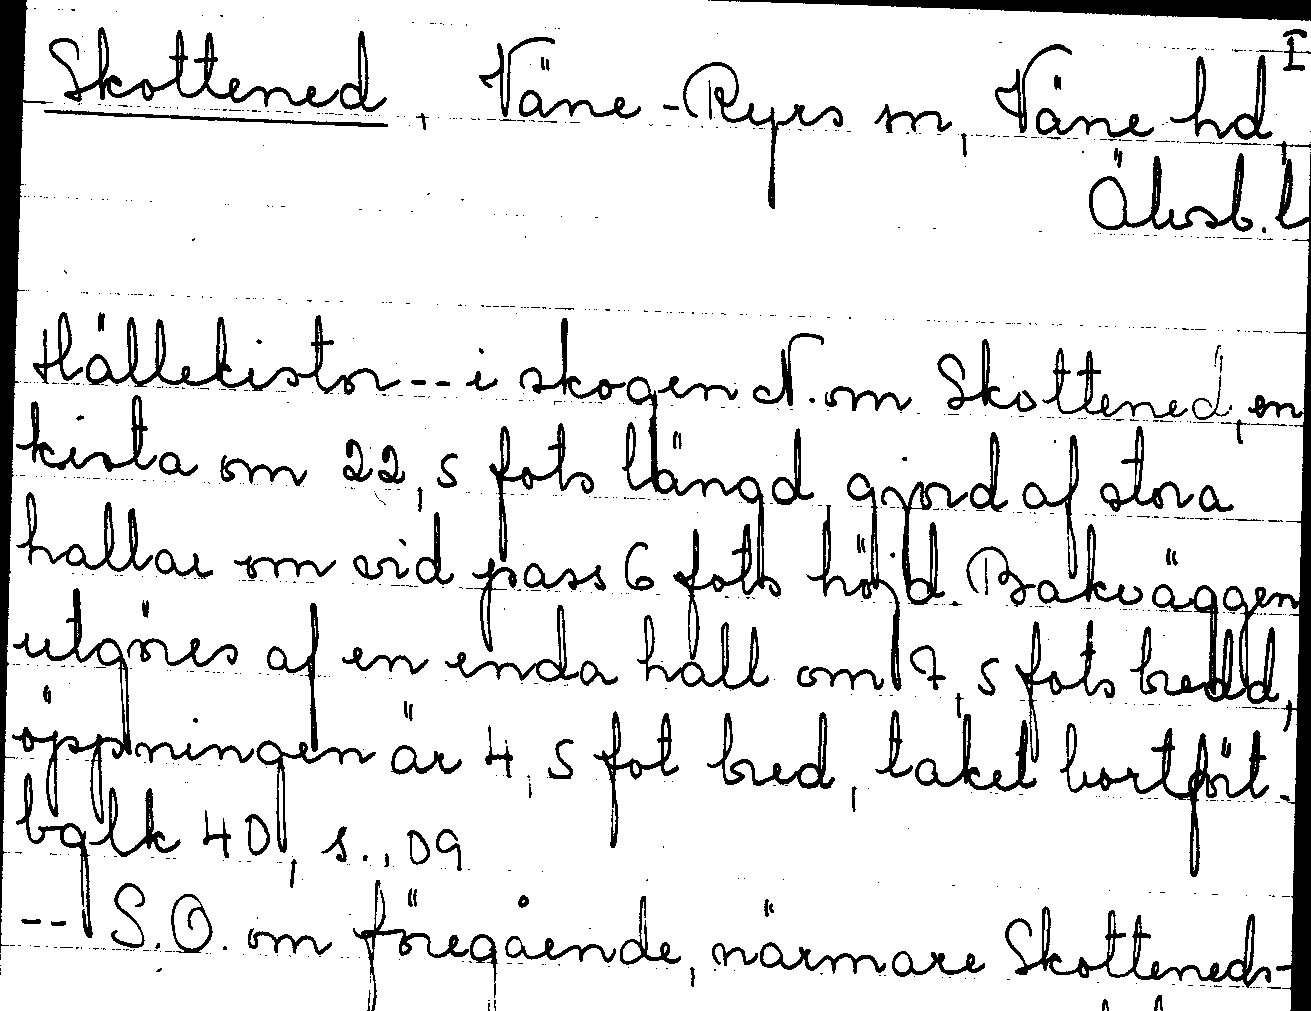 I
Skottened, Väne-Ryrs sn, Väne hd,
Älvsb. l
Hällekistor -- i skogen N. om Skottened, en
kista om 22,5 fots längd gjord af stora
hallar om vid pass 6 fots höjd. Bakväggen
utgöres af en enda hall om 7,5 fots bredd,
öppningen är 4,5 fot bred, taket bortfört.
balk 40, s.. 09
-- S.O. om föregående, närmare Skotteneds-